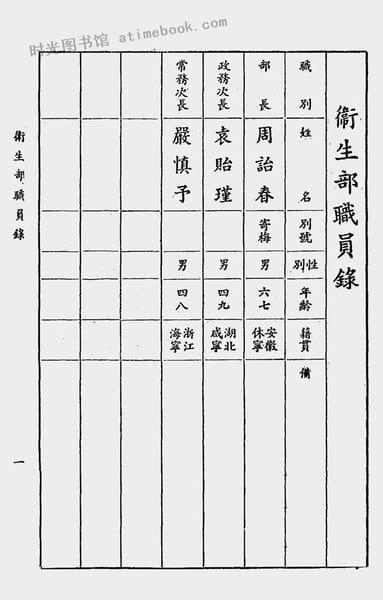 时光图书馆 www.atimebook.com
衞生部職員錄
職別 姓名 別號 性別 年齡 籍貫 備
部長 周詒春 寄梅 男 六七 安徽休寧
政務次長 袁貽瑾 男 四九 湖北咸寧
常務次長 嚴慎予 男 四八 浙江海寧
衞生部職員錄
一